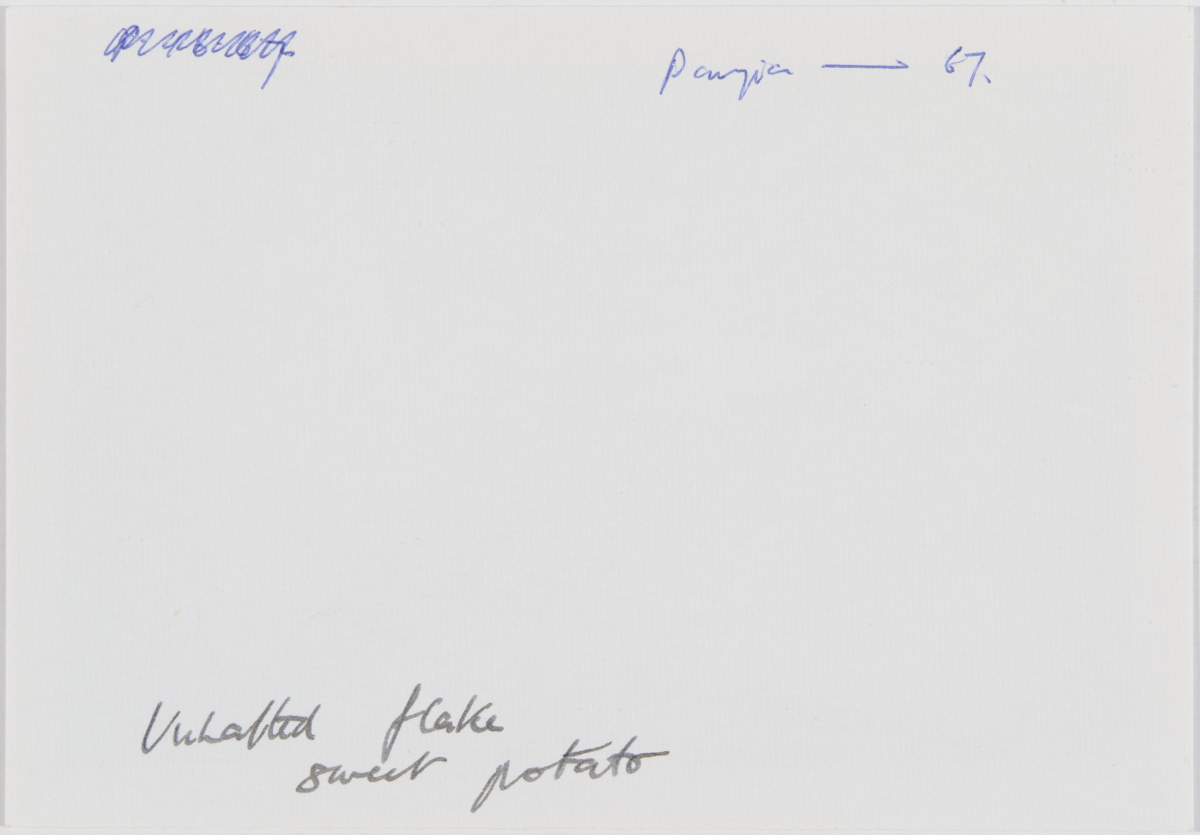 Pangia → 67.
Unhafted flake
sweet potato